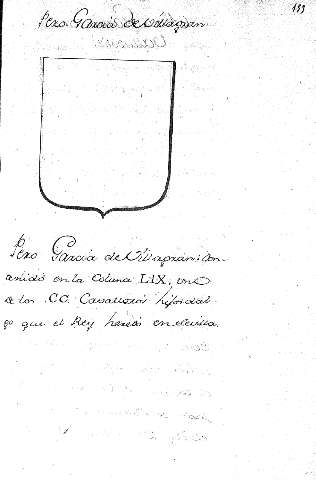 193
Pero Garcia de Villagran
Pero Garcia de Villagran: con-
tenido en la Coluna LIX, uno
de los CC. Cavalleros hijosdal
go que el Rey heredó en Sevilla.